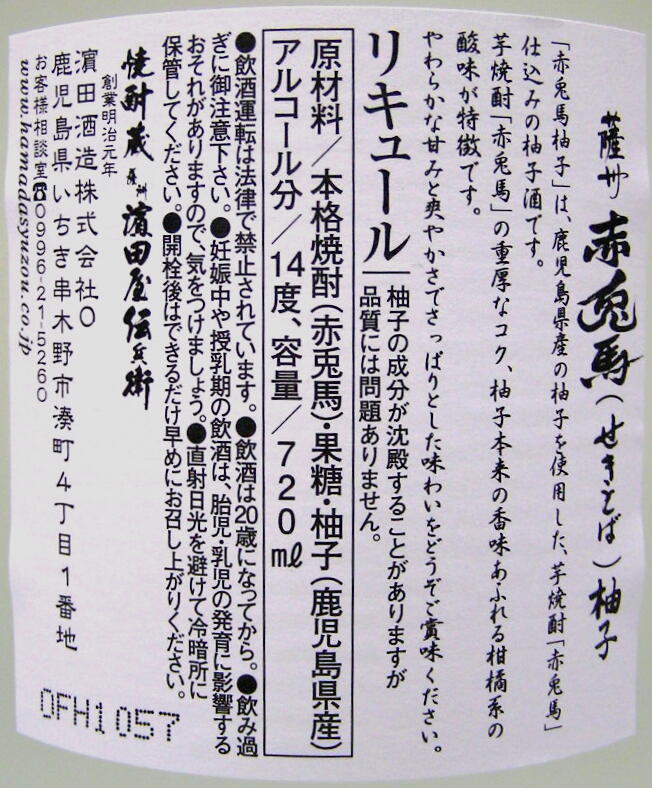 薩州 赤兎馬（せきとば）柚子
「赤兎馬柚子」は、鹿児島県産の柚子を使用した、芋焼酎「赤兎馬」
仕込みの柚子酒です。
芋焼酎「赤兎馬」の重厚なコク、柚子本来の香味あふれる柑橘系の
酸味が特徴です。
やわらかな甘みと爽やかさでさっぱりとした味わいをどうぞご賞味ください。
リキュール
柚子の成分が沈殿することがありますが
品質には問題ありません。
原材料／本格焼酎（赤兎馬）・果糖・柚子（鹿児島県産）
アルコール分／14度、容量／720㎖
●飲酒運転は法律で禁止されています。●飲酒は20歳になってから。●飲み過
ぎに御注意下さい。●妊娠中や授乳期の飲酒は、胎児・乳児の発育に影響する
おそれがありますので、気をつけましょう。●直射日光を避けて冷暗所に
保管してください。●開栓後はできるだけ早めにお召し上がりください。
焼酎蔵 薩州 濵田屋伝兵衛
創業明治元年
濵田酒造株式会社O
鹿児島県いちき串木野市湊町4丁目1番地
お客様相談室☎0996-21-5260
www.hamadasyuzou.co.jp
OFH1057